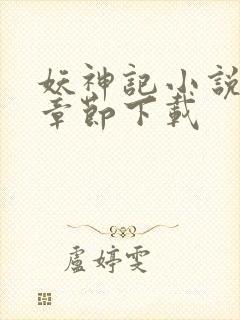 妖神記小說
章節下載
盧婷雯